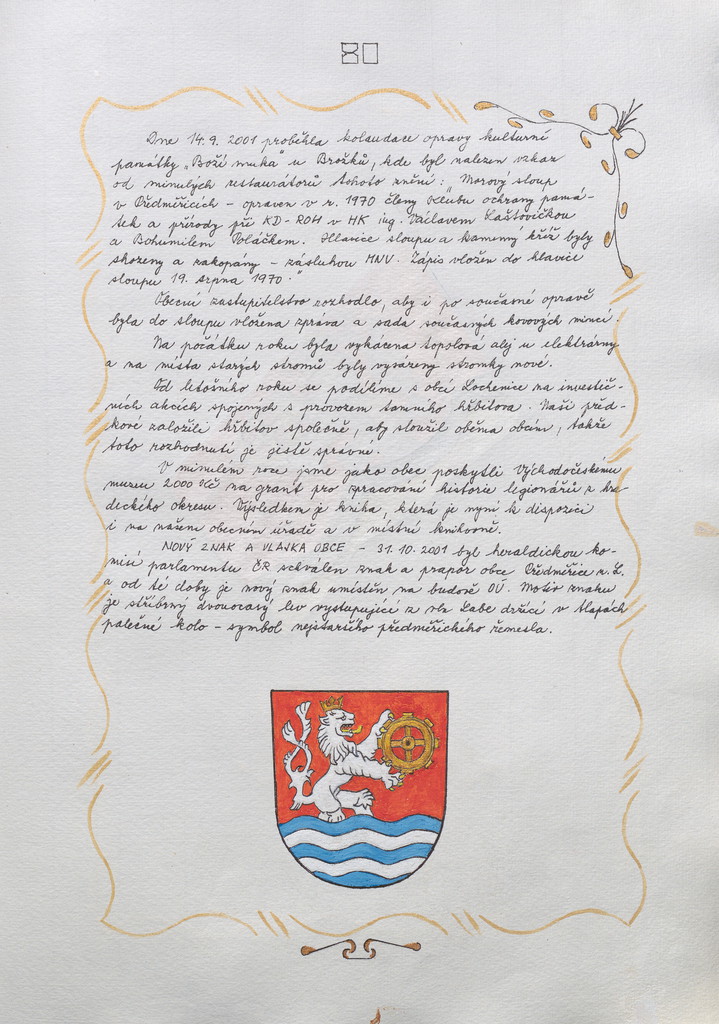 80
Dne 14.9. 2001 proběhla kolaudace opravy kulturní
památky „Boží muka" u Brožků, kde byl nalezen vzkaz
od minulých restaurátorů tohoto znění: „Morový sloup
v Předměřicích - opraven v r. 1970 členy Klubu ochrany pamá-
tek a přírody při KD-ROH v HK ing. Václavem Laštovičkou
a Bohumilem Poláčkem. Hlavice sloupu a kamenný kříž byly
shozeny a zakopány - zásluhou MNV. Zápis vložen do hlavice
sloupu 19. srpna 1970."
Obecní zastupitelstvo rozhodlo, aby i po současné opravě
byla do sloupu vložena zpráva a sada současných kovových mincí.
Na počátku roku byla vykácena topolová alej u elektrárny
a na místa starých stromů byly vysázeny stromky nové.
Od letošního roku se podílíme s obcí Lochenice na investič-
ních akcích spojených s provozem tamního hřbitova. Naši před-
kové založili hřbitov společně, aby sloužil oběma obcím, takže
toto rozhodnutí je jistě správné.
V minulém roce jsme jako obec poskytli Východočeskému
muzeu 2000 Kč na grant pro zpracování historie legionářů z hra-
deckého okresu. Výsledkem je kniha, která je nyní k dispozici
i na našem obecním úřadě a v místní knihovně.
NOVÝ ZNAK A VLAJKA OBCE - 31.10.2001 byl heraldickou ko-
misí parlamentu ČR schválen znak a prapor obce Předměřice n. L.
a od té doby je nový znak umístěn na budově OÚ. Motiv znaku
je stříbrný dvouocasý lev vystupující z vln Labe držící v tlapách
palečné kolo - symbol nejstaršího předměřického řemesla.